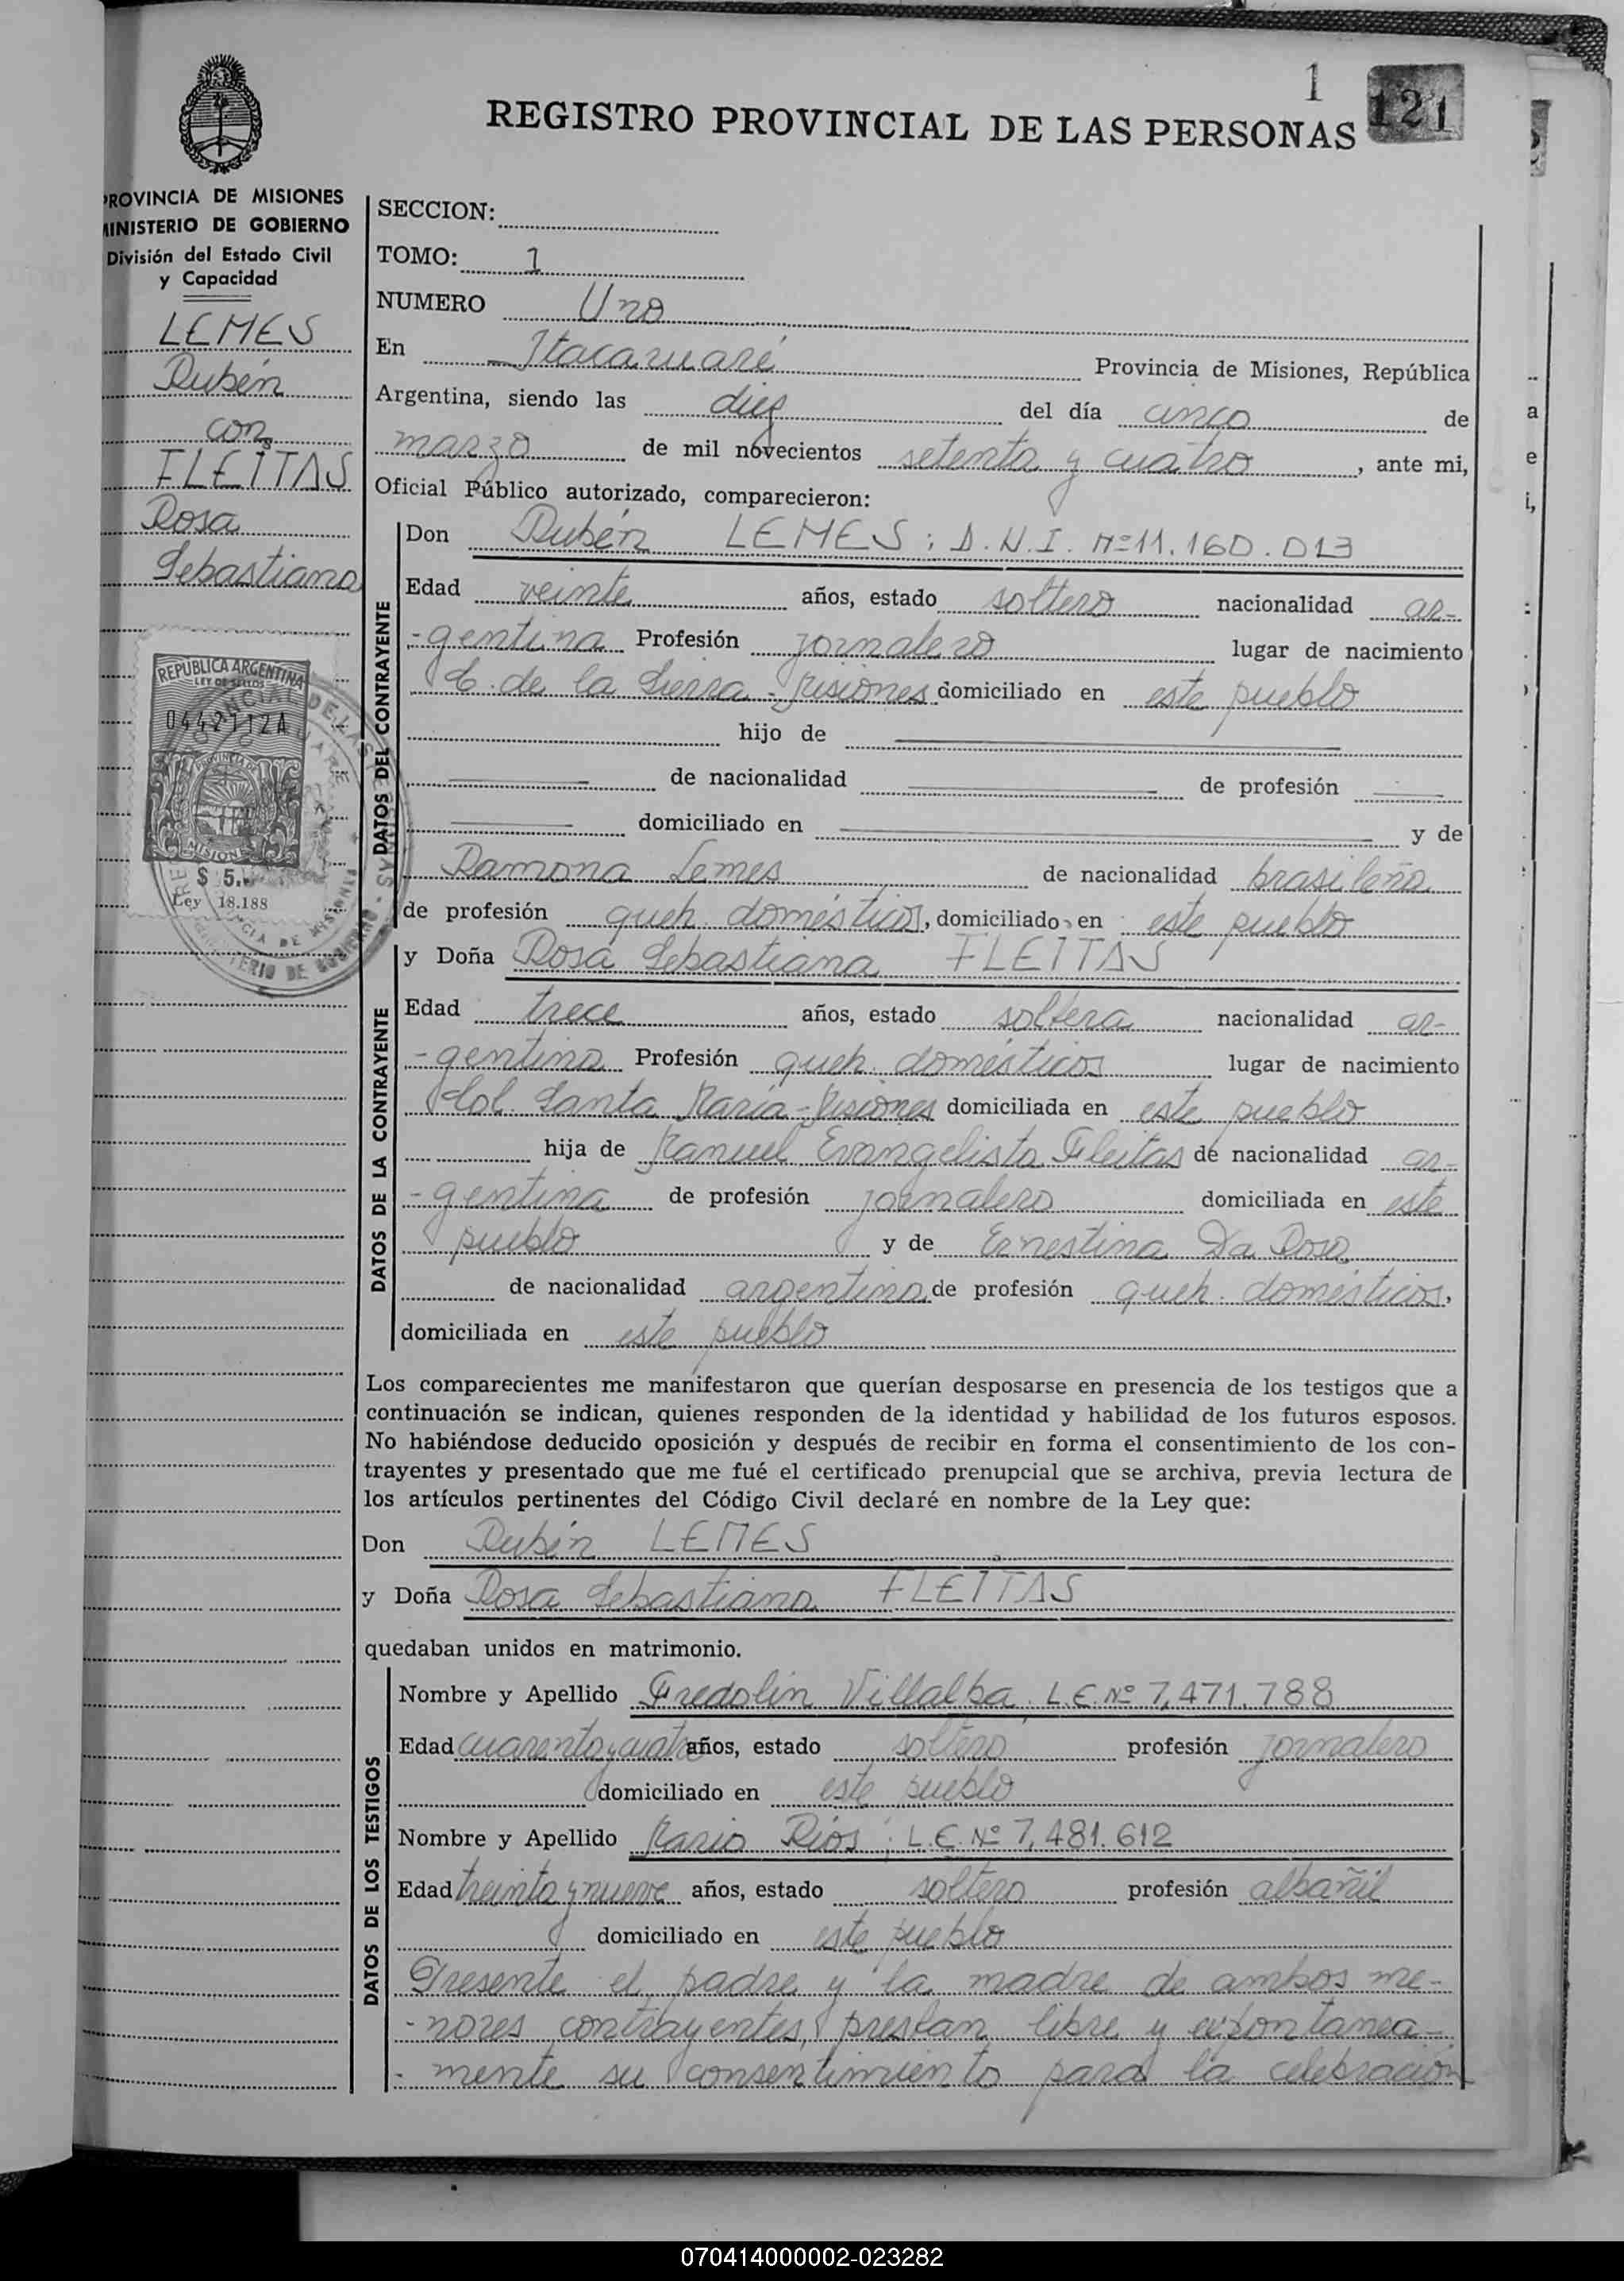 1
121
REGISTRO PROVINCIAL DE LAS PERSONAS
PROVINCIA DE MISIONES
MINISTERIO DE GOBIERNO
División del Estado Civil
y Capacidad
LEMES
Rubén
con
FLEITAS
Rosa
Sebastiana
REPUBLICA ARGENTINA
LEY DE SELLOS
0442112A
PROVINCIA DE
MISIONES
$ 5.
Ley 18.188
SECCION:
TOMO: 1
NUMERO Uno
En Itacaruaré Provincia de Misiones, República
Argentina, siendo las diez del día cinco de
marzo de mil novecientos setenta y cuatro, ante mi,
Oficial Público autorizado, comparecieron:
DATOS DEL CONTRAYENTE
Don Rubén LEMES; D.N.I. Nº 11.160.013
Edad veinte años, estado soltero nacionalidad ar-
-gentina Profesión jornalero lugar de nacimiento
C. de la Sierra - Misiones domiciliado en este pueblo
hijo de
de nacionalidad de profesión
domiciliado en y de
Ramona Lemes de nacionalidad brasileña
de profesión queh. domésticos, domiciliado en este pueblo
DATOS DE LA CONTRAYENTE
y Doña Rosa Sebastiana FLEITAS
Edad trece años, estado soltera nacionalidad ar-
-gentina Profesión queh. domésticos lugar de nacimiento
Col. Santa María - Misiones domiciliada en este pueblo
hija de Manuel Evangelista Fleitas de nacionalidad ar-
-gentina de profesión jornalero domiciliada en este
pueblo y de Ernestina Da Rosa
de nacionalidad argentina de profesión queh. domésticos,
domiciliada en este pueblo
Los comparecientes me manifestaron que querían desposarse en presencia de los testigos que a
continuación se indican, quienes responden de la identidad y habilidad de los futuros esposos.
No habiéndose deducido oposición y después de recibir en forma el consentimiento de los con-
trayentes y presentado que me fué el certificado prenupcial que se archiva, previa lectura de
los artículos pertinentes del Código Civil declaré en nombre de la Ley que:
Don Rubén LEMES
y Doña Rosa Sebastiana FLEITAS
quedaban unidos en matrimonio.
DATOS DE LOS TESTIGOS
Nombre y Apellido Fredolin Villalba. L.E. Nº 7,471.788
Edad cuarenta y cuatro años, estado soltero profesión jornalero
domiciliado en este pueblo
Nombre y Apellido Mario Ríos; L.E. Nº 7,481.612
Edad treinta y nueve años, estado soltero profesión albañil
domiciliado en este pueblo
Presente el padre y la madre de ambos me-
-nores contrayentes, prestan libre y expontanea-
-mente su consentimiento para la celebración
070414000002-023282